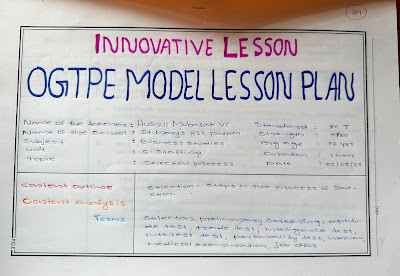 79
INNOVATIVE LESSON
OGTPE MODEL LESSON PLAN
Name of the teacher : Husnul Mubarak VC Standard : XII T
Name of the School : St. Marys HSS, Strength :
Subject : Business studies Avg age : 17 yrs
Unit : 6-Staffing Duration : 1 hour
Topic : Selection process Date :
Content outline Selection - Steps in the process of Sele-
ction.
Content analysis
Terms Selection, preliminary Screening, aptitu-
de test, trade test, intelligence test,
interest test, personality test, interview
medical examination, job offer